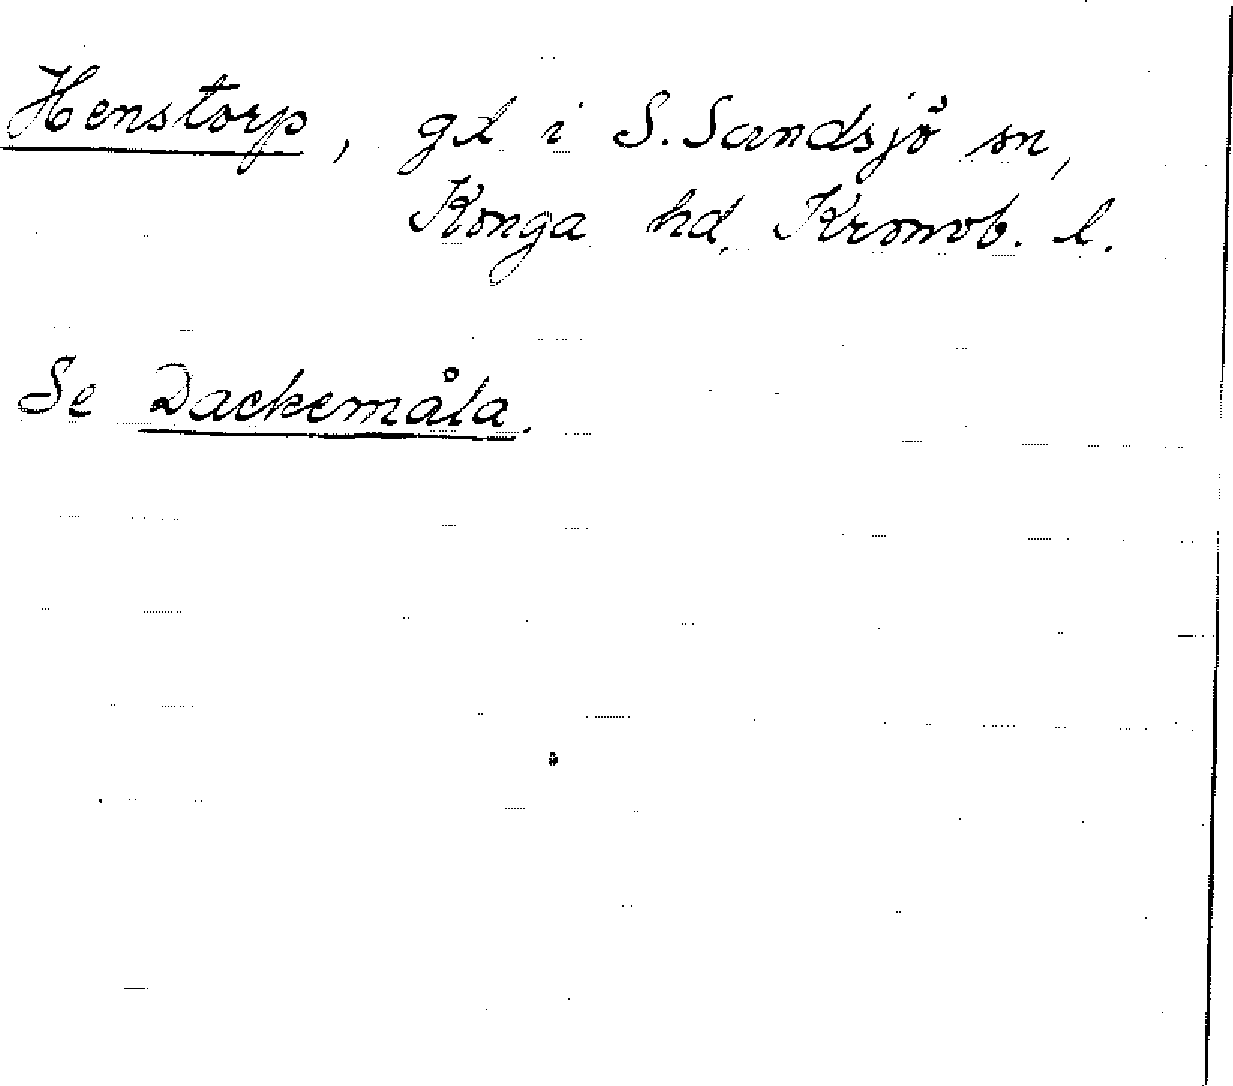 Henstorp, gd i S. Sandsjö sn,
Konga hd, Kronob. l.
Se Dackemåla.